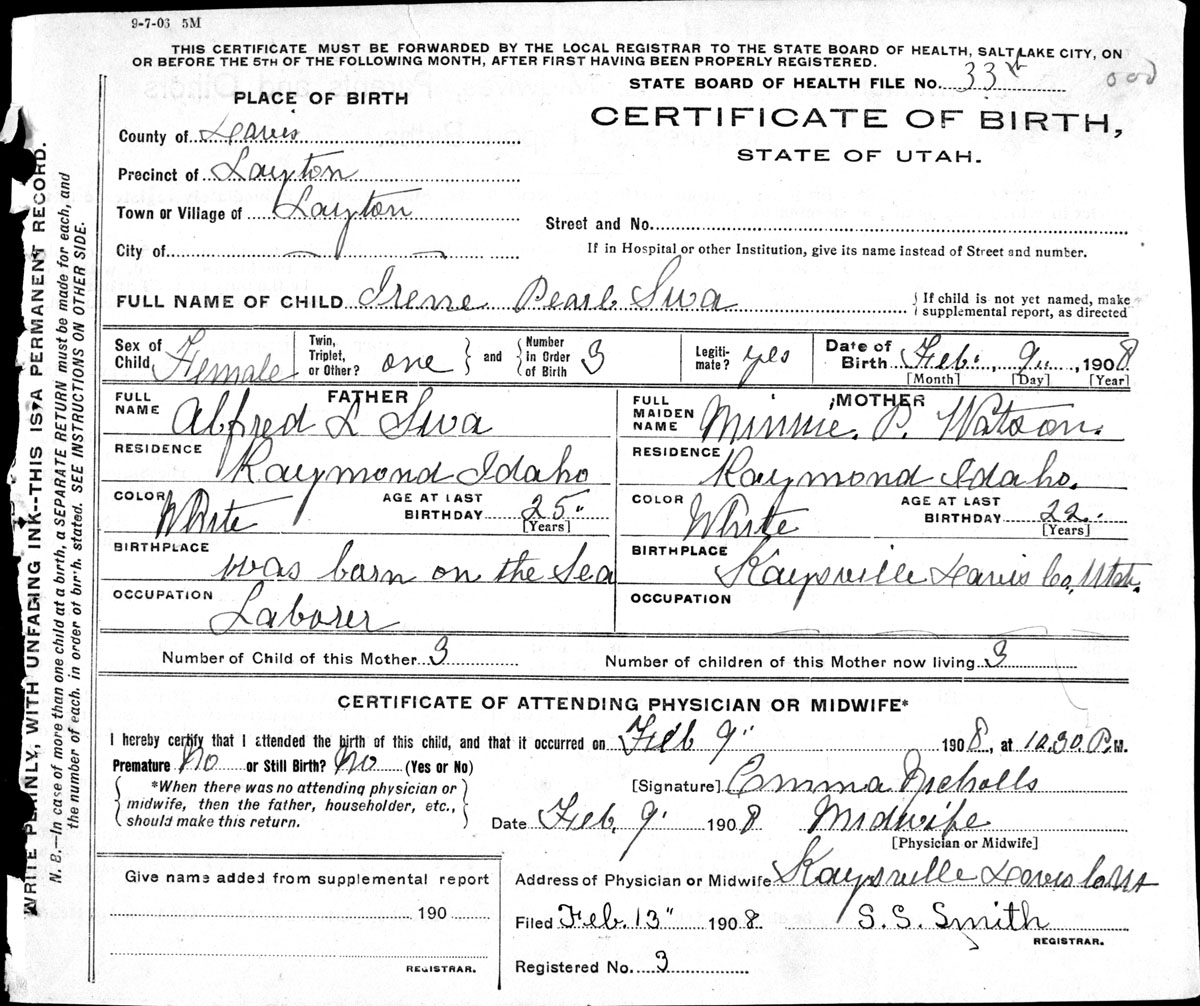 9-7-03 5M
THIS CERTIFICATE MUST BE FORWARDED BY THE LOCAL REGISTRAR TO THE STATE BOARD OF HEALTH, SALT LAKE CITY, ON
OR BEFORE THE 5TH OF THE FOLLOWING MONTH, AFTER FIRST HAVING BEEN PROPERLY REGISTERED.
STATE BOARD OF HEALTH FILE No. 33
PLACE OF BIRTH
CERTIFICATE OF BIRTH,
STATE OF UTAH.
County of Davis
Precinct of Layton
Town or Village of Layton
Street and No.
City of
If in Hospital or other Institution, give its name instead of Street and number.
FULL NAME OF CHILD Irene Pearl Swa
{ If child is not yet named, make supplemental report, as directed
Sex of Child Female Twin, Triplet, or Other? one } and { Number in Order of Birth 3 Legiti-mate? yes Date of Birth Feb. 9", 1908
[Month] [Day] [Year]
FATHER
MOTHER
FULL NAME Alfred L Swa
FULL MAIDEN NAME Minnie. P. Watson.
RESIDENCE Raymond Idaho
RESIDENCE Raymond Idaho.
COLOR White AGE AT LAST BIRTHDAY 25" [Years]
COLOR White AGE AT LAST BIRTHDAY 22 [Years]
BIRTHPLACE was barn on the Sea
BIRTHPLACE Kaysville Davis Co, Utah.
OCCUPATION Laborer
OCCUPATION
Number of Child of this Mother 3
Number of children of this Mother now living 3
CERTIFICATE OF ATTENDING PHYSICIAN OR MIDWIFE*
I hereby certify that I attended the birth of this child, and that it occurred on Feb 9" 1908, at 10.30 P.M.
Premature No or Still Birth? No (Yes or No)
{ *When there was no attending physician or
midwife, then the father, householder, etc.,
should make this return. }
[Signature] Emma Nicholls
Date Feb. 9. 1908 Midwife
[Physician or Midwife]
Give name added from supplemental report
190
REGISTRAR.
Address of Physician or Midwife Kaysville Davis Co Ut
Filed Feb. 13" 1908 S. S. Smith
REGISTRAR.
Registered No. 3
WRITE PLAINLY, WITH UNFADING INK--THIS IS A PERMANENT RECORD.
N. B.—In case of more than one child at a birth, a SEPARATE RETURN must be made for each, and
the number of each, in order of birth, stated. SEE INSTRUCTIONS ON OTHER SIDE.